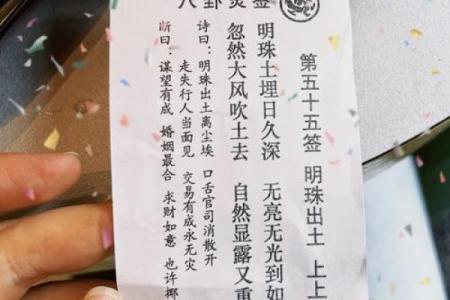 八卦灵签
第五十五签 明珠出土 上上
明珠土埋日久深 无亮无光到如
忽然大风吹土去 自然显露又重
诗曰：明珠出土离尘埃 口舌官司消散开
走失行人当面见 交易有成永无灾
断曰：谋望有成 婚姻最合 求财如意 也许